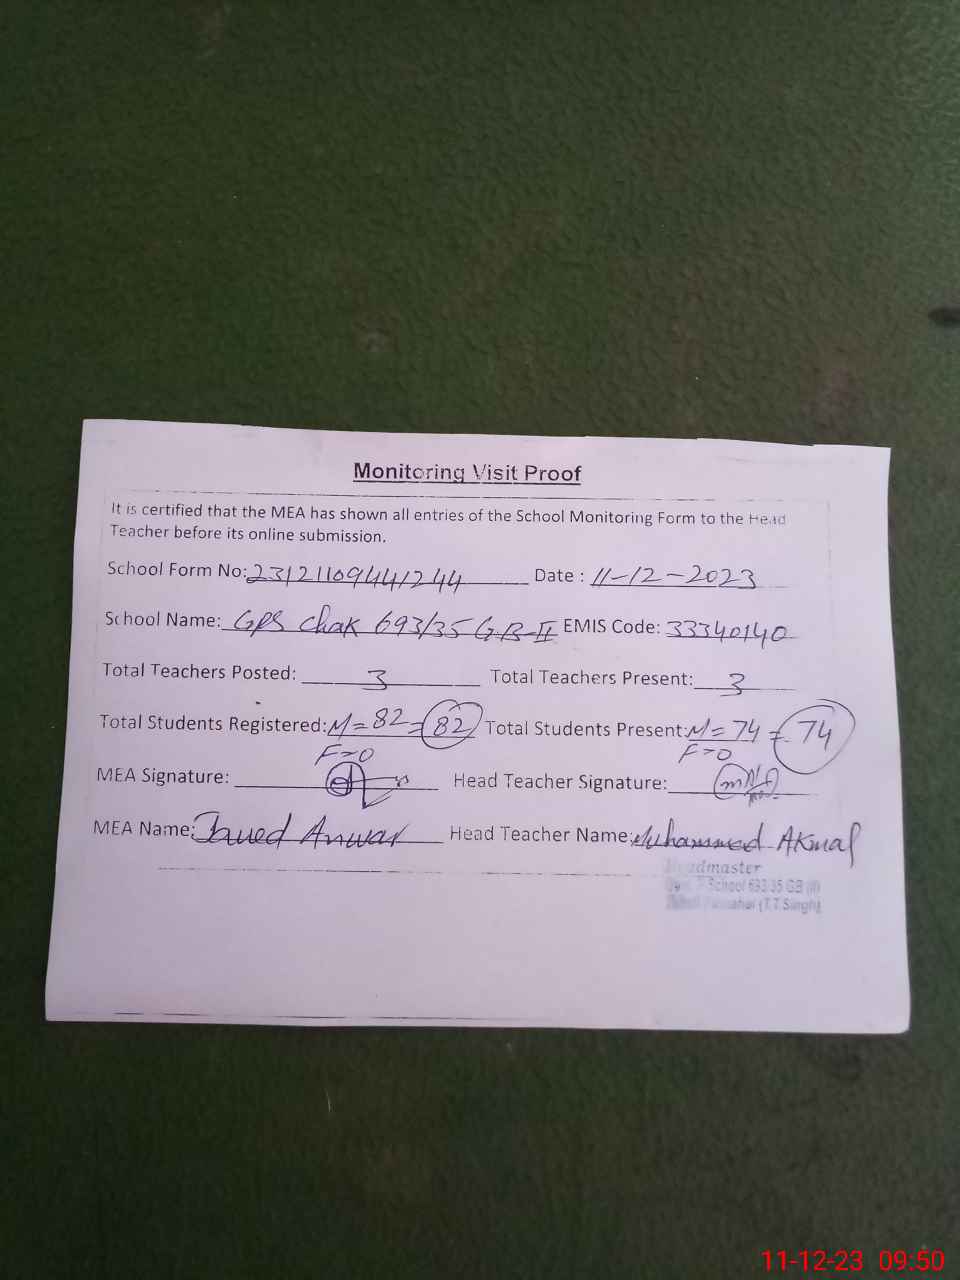 Monitoring Visit Proof
It is certified that the MEA has shown all entries of the School Monitoring Form to the Head
Teacher before its online submission.
School Form No: 23121109441244 Date : 11-12-2023
School Name: GPS Chak 693/35 G.B-II EMIS Code: 33340140
Total Teachers Posted: 3 Total Teachers Present: 3
Total Students Registered: M=82=82 Total Students Present: M=74=74
F=0 F=0
MEA Signature: Head Teacher Signature:
MEA Name: Javed Anwar Head Teacher Name: Muhammad Akmal
Headmaster
School 693/35 GB (II)
(T.T.Singh)
11-12-23 09:50